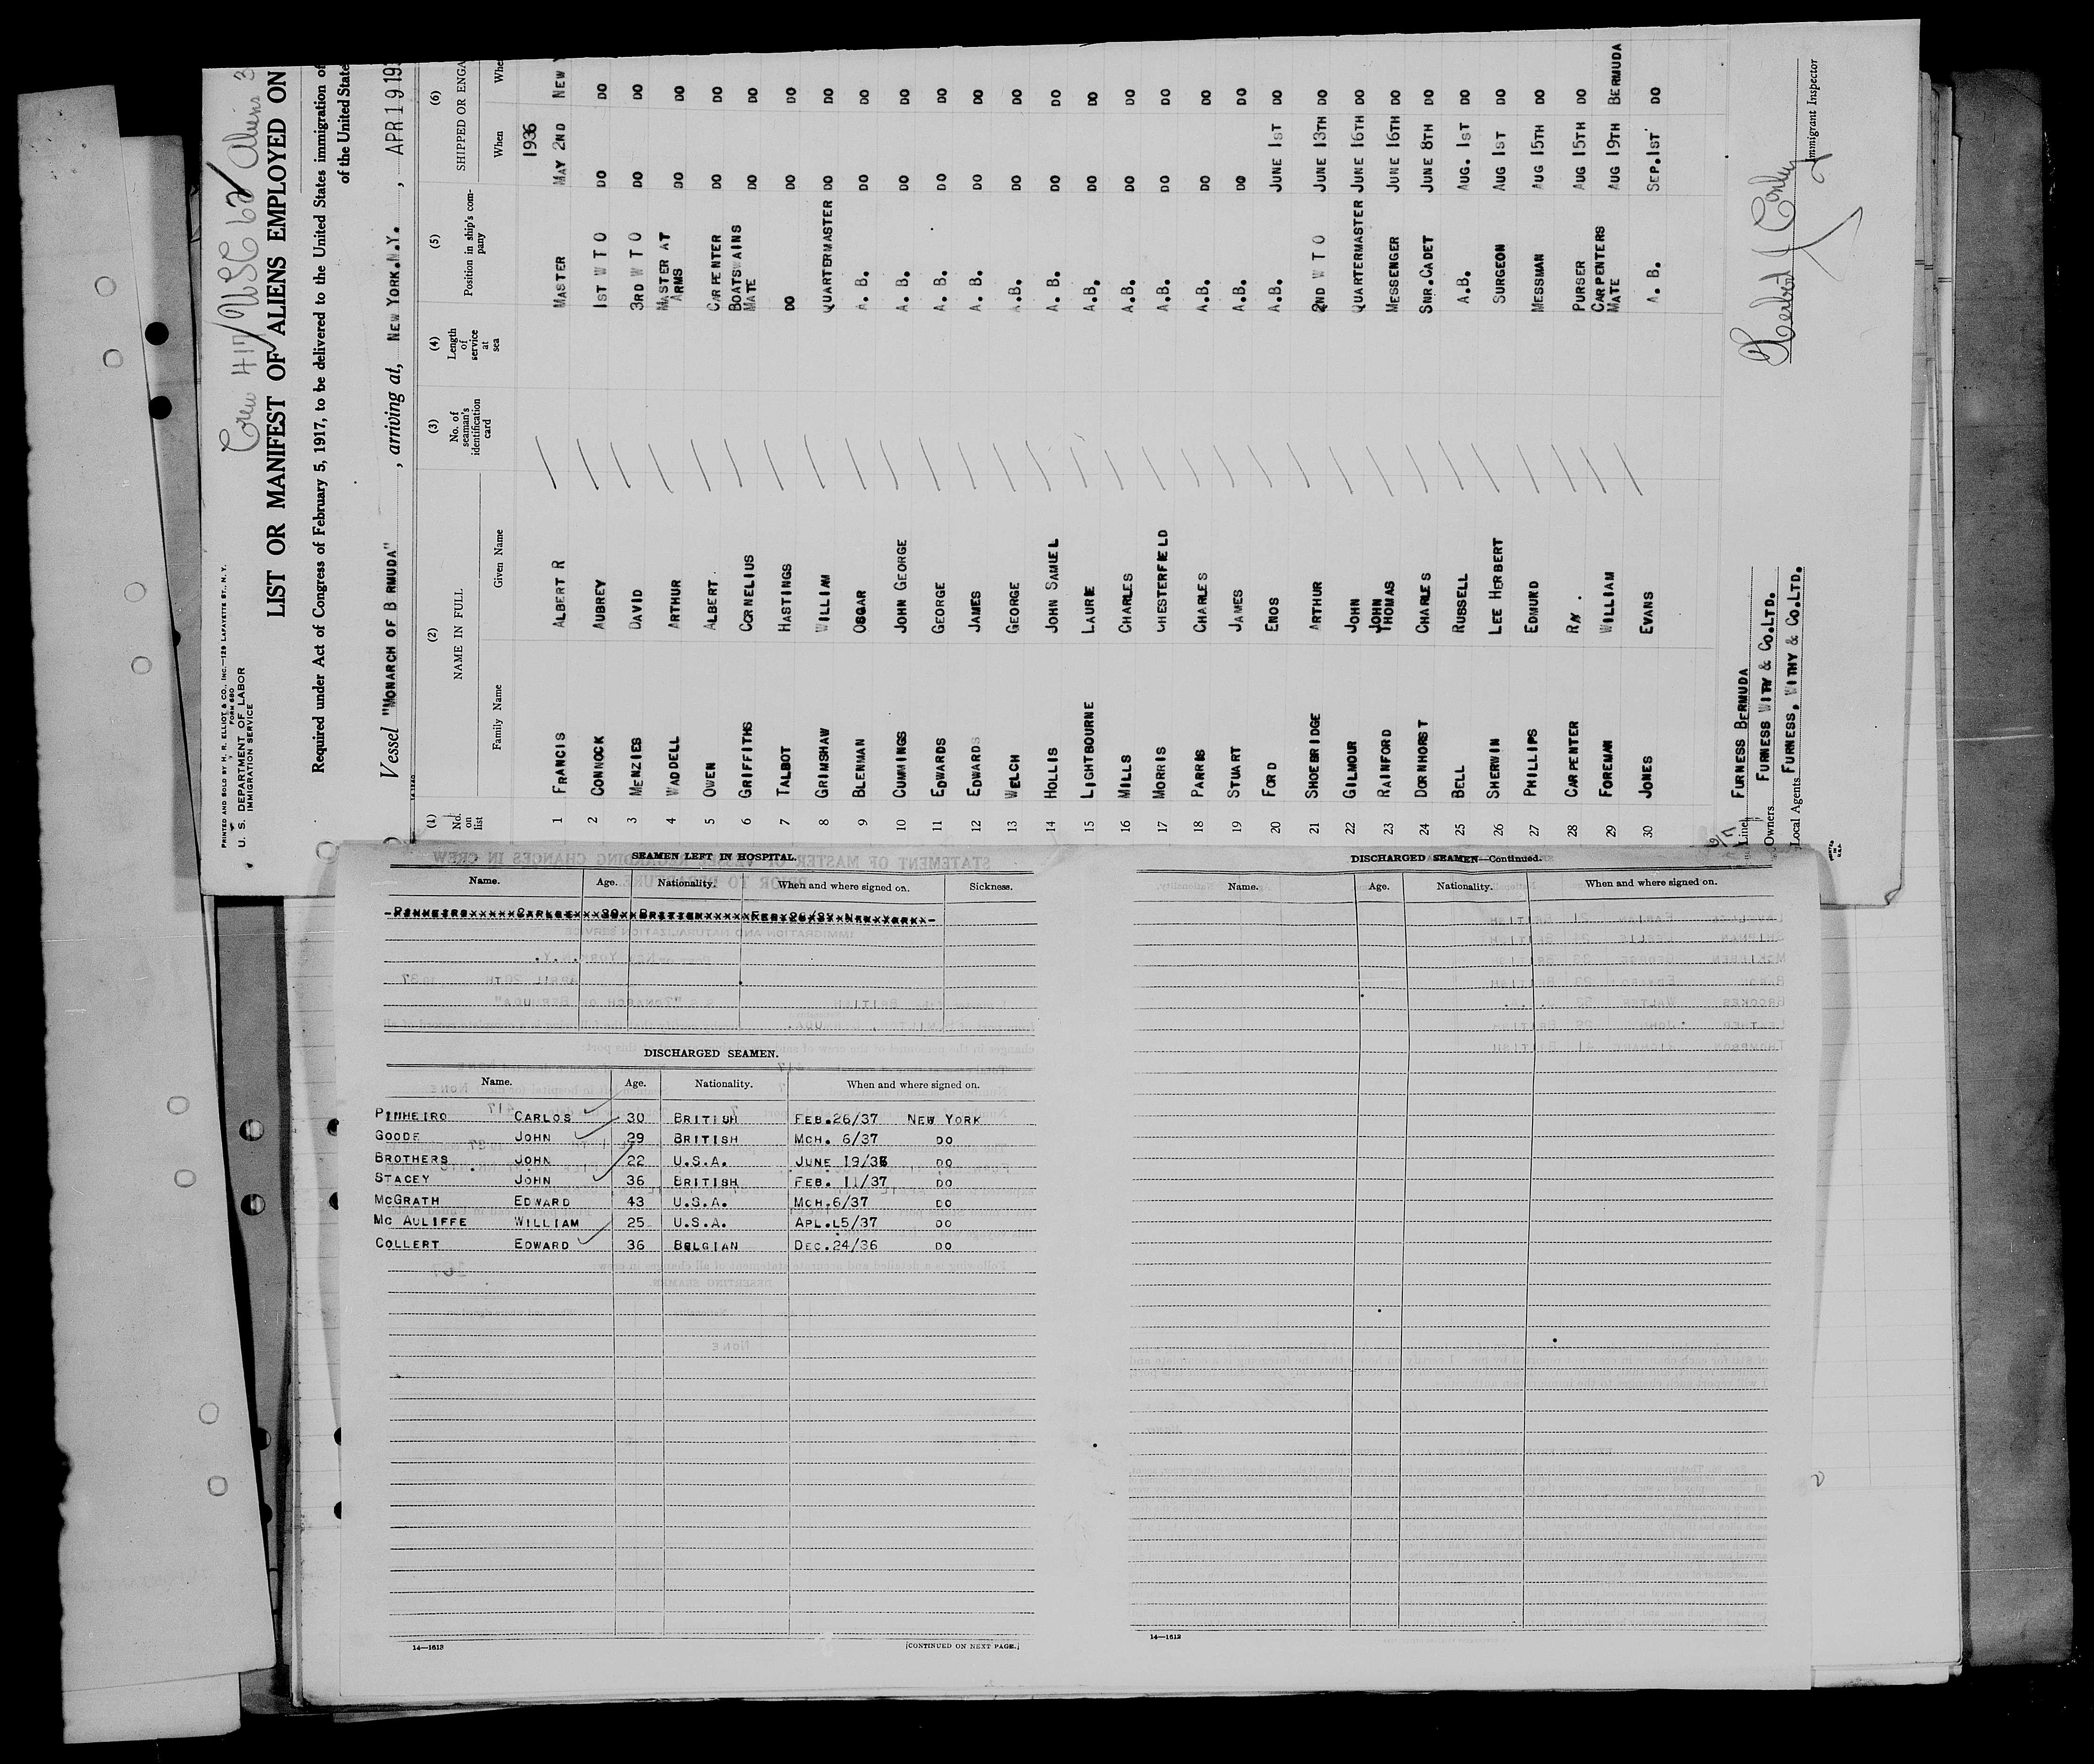 PRINTED AND SOLD BY H. R. ELLIOT & CO., INC.—129 LAFAYETTE ST., N. Y.
FORM 680
U. S. DEPARTMENT OF LABOR
IMMIGRATION SERVICE
Crew 417/ USC 62 Aliens 3
LIST OR MANIFEST OF ALIENS EMPLOYED ON
Required under Act of Congress of February 5, 1917, to be delivered to the United States immigration of
of the United State
Vessel "MONARCH OF BERMUDA", arriving at, NEW YORK.N.Y., APR 19 193
(1) (2) (3) (4) (5) (6)
No. on list NAME IN FULL No. of seaman's identification card Length of service at sea Position in ship's company SHIPPED OR ENGA
Family Name Given Name When Whe
1936
1 FRANCIS ALBERT R MASTER MAY 2ND NEW Y
2 CONNOCK AUBREY 1ST W T O DO DO
3 MENZIES DAVID 3RD W T O DO DO
4 WADDELL ARTHUR MASTER AT ARMS DO DO
5 OWEN ALBERT CARPENTER DO DO
6 GRIFFITHS CORNELIUS BOATSWAINS MATE DO DO
7 TALBOT HASTINGS DO DO DO
8 GRIMSHAW WILLIAM QUARTERMASTER DO DO
9 BLENMAN OSCAR A. B. DO DO
10 CUMMINGS JOHN GEORGE A. B. DO DO
11 EDWARDS GEORGE A. B. DO DO
12 EDWARDS JAMES A. B. DO DO
13 WELCH GEORGE A.B. DO DO
14 HOLLIS JOHN SAMUEL A. B. DO DO
15 LIGHTBOURNE LAURIE A.B. DO DO
16 MILLS CHARLES A.B. DO DO
17 MORRIS CHESTERFIELD A.B. DO DO
18 PARRIS CHARLES A.B. DO DO
19 STUART JAMES A.B. DO DO
20 FORD ENOS A.B. JUNE 1ST DO
21 SHOEBRIDGE ARTHUR 2ND W T O JUNE 13TH DO
22 GILMOUR JOHN QUARTERMASTER JUNE 16TH DO
23 RAINFORD JOHN THOMAS MESSENGER JUNE 16TH DO
24 DORNHORST CHARLES SNR.CADET JUNE 8TH DO
25 BELL RUSSELL A.B. AUG. 1ST DO
26 SHERWIN LEE HERBERT SURGEON AUG 1ST DO
27 PHILLIPS EDMUND MESSMAN AUG 15TH DO
28 CARPENTER PURSER AUG 15TH DO
29 FOREMAN WILLIAM CARPENTERS MATE AUG 19TH BERMUDA
30 JONES EVANS A. B. SEP.1ST DO
Line FURNESS BERMUDA
Owners FURNESS WITHY & CO.LTD.
Local Agents FURNESS, WITHY & CO.LTD.
Immigrant Inspector
SEAMEN LEFT IN HOSPITAL.
Name. Age. Nationality. When and where signed on. Sickness.
DISCHARGED SEAMEN.
Name. Age. Nationality. When and where signed on.
PINHEIRO CARLOS 30 BRITISH FEB.26/37 NEW YORK
GOODE JOHN 29 BRITISH MCH. 6/37 DO
BROTHERS JOHN 22 U.S.A. JUNE 19/36 DO
STACEY JOHN 36 BRITISH FEB. 11/37 DO
MCGRATH EDWARD 43 U.S.A. MCH.6/37 DO
MC AULIFFE WILLIAM 25 U.S.A. APL.L5/37 DO
COLLERT EDWARD 36 BELGIAN DEC.24/36 DO
14—1613
[CONTINUED ON NEXT PAGE.]
DISCHARGED SEAMEN—Continued.
Name. Age. Nationality. When and where signed on.
14—1613